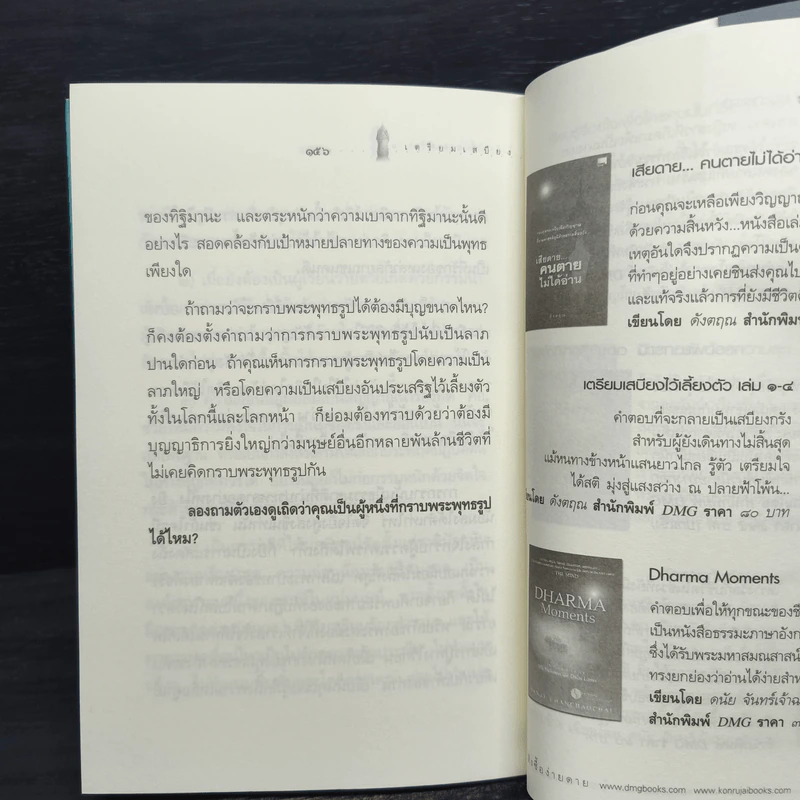 ๑๕๖
เตรียมเสบียง
ของทิฐิมานะ และตระหนักว่าความเบาจากทิฐิมานะนั้นดี
อย่างไร สอดคล้องกับเป้าหมายปลายทางของความเป็นพุทธ
เพียงใด
ถ้าถามว่าจะกราบพระพุทธรูปได้ต้องมีบุญขนาดไหน?
ก็คงต้องตั้งคำถามว่าการกราบพระพุทธรูปนับเป็นลาภ
ปานใดก่อน ถ้าคุณเห็นการกราบพระพุทธรูปโดยความเป็น
ลาภใหญ่ หรือโดยความเป็นเสบียงอันประเสริฐไว้เลี้ยงตัว
ทั้งในโลกนี้และโลกหน้า ก็ย่อมต้องทราบด้วยว่าต้องมี
บุญญาธิการยิ่งใหญ่กว่ามนุษย์อื่นอีกหลายพันล้านชีวิตที่
ไม่เคยคิดกราบพระพุทธรูปกัน
ลองถามตัวเองดูเถิดว่าคุณเป็นผู้หนึ่งที่กราบพระพุทธรูป
ได้ไหม?
เสียดาย...
คนตาย
ไม่ได้อ่าน
เสียดาย... คนตายไม่ได้อ่า
ก่อนคุณจะเหลือเพียงวิญญาณ
ด้วยความสิ้นหวัง...หนังสือเล่ม
เหตุอันใดจึงปรากฏความเป็น
ที่ทำๆอยู่อย่างเคยชินส่งคุณไป
และแท้จริงแล้วการที่ยังมีชีวิต
เขียนโดย ดังตฤณ สำนักพิมพ์
เตรียมเสบียงไว้เลี้ยงตัว เล่ม ๑-๔
คำตอบที่จะกลายเป็นเสบียงกรัง
สำหรับผู้ยังเดินทางไม่สิ้นสุด
แม้หนทางข้างหน้าแสนยาวไกล รู้ตัว เตรียมใจ
ได้สติ มุ่งสู่แสงสว่าง ณ ปลายฟ้าโพ้น...
นโดย ดังตฤณ สำนักพิมพ์ DMG ราคา ๘๐ บาท
DHARMA
Moments
Dharma Moments
คำตอบเพื่อให้ทุกขณะของชี
เป็นหนังสือธรรมะภาษาอังก
ซึ่งได้รับพระมหาสมณสาสน์
ทรงยกย่องว่าอ่านได้ง่ายสำห
เขียนโดย ดนัย จันทร์เจ้าฉ
สำนักพิมพ์ DMG ราคา
ซื้อง่ายดาย www.dmgbooks.com www.konrujaibooks.com